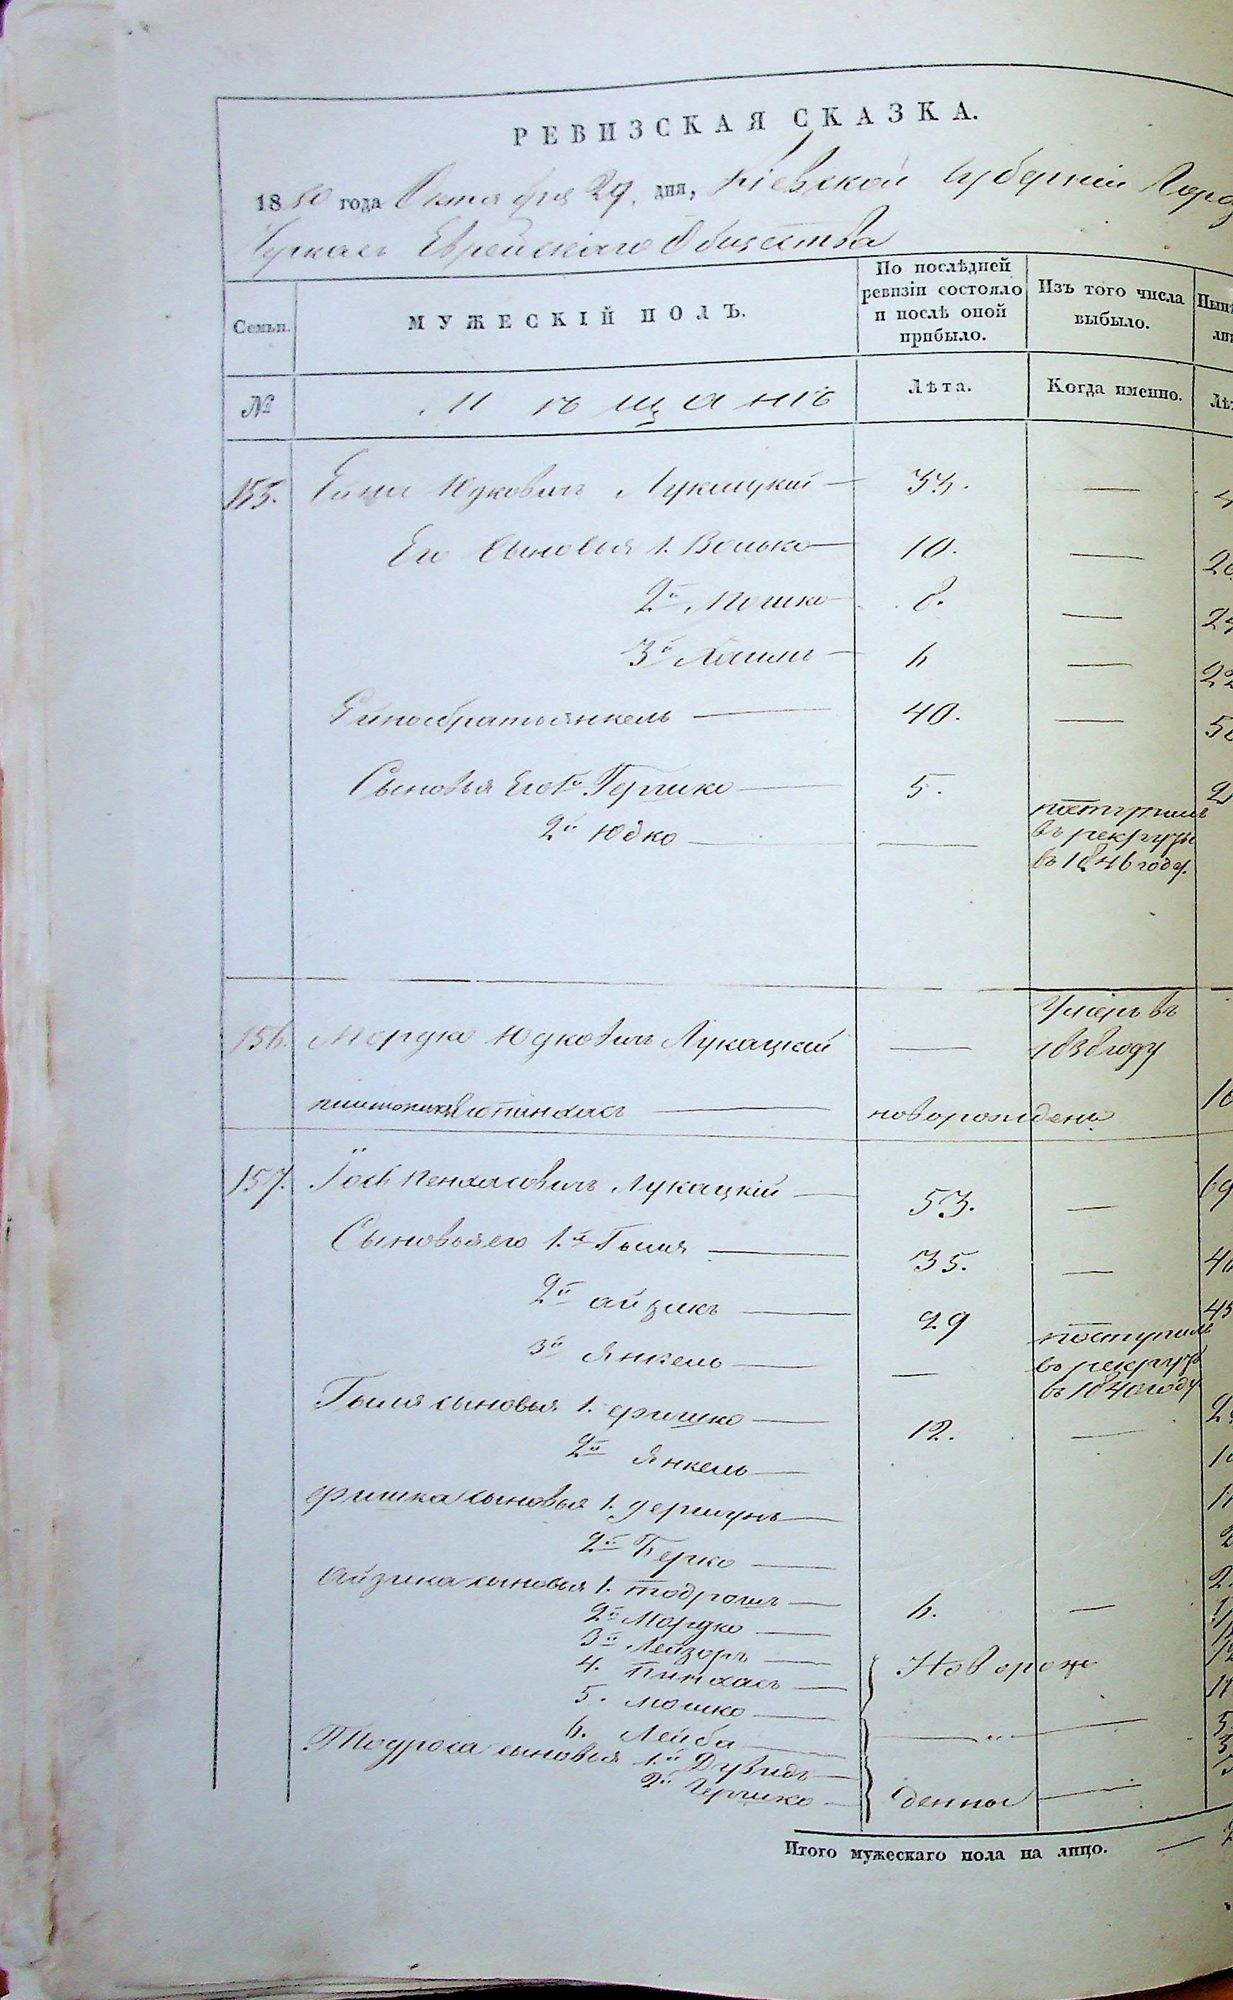 РЕВИЗСКАЯ СКАЗКА.
1850 года Октября 29. дня, Кіевской Губерніи Горо
Черкасъ Еврейскаго Общества
Семьи. МУЖЕСКІЙ ПОЛЪ. По послѣдней ревизіи состояло и послѣ оной прибыло. Изъ того числа выбыло.
№ Мѣщанъ Лѣта. Когда именно.
155. Юдковичъ Лукацкій — 33. —
Его Сыновья 1. Волько — 10. —
2й Мошко — 8. —
3й — 6 —
братъ Янкель — 40. —
Сыновья Его 1й Гершко — 5.
2й Юдко — — поступилъ
въ рекруты
въ 1846 году.
156. Мордко Юдковичъ Лукацкій — Умеръ въ
1838 году
Пинхасъ — новорожденъ
157. Іось Пенхасовичъ Лукацкій — 53. —
Сыновья его 1.й Гиля — 35. —
2й Айзикъ — 29
3й Янкель — — поступилъ
въ рекруты
въ 1840 году
Гиля сыновья 1. Фришко — 12. —
2й Янкель —
Фришка сыновья 1. Гершунъ —
2й Берко —
Айзика сыновья 1. Тодросъ — 6. —
2й Мордко —
3й Лейзоръ —
4. Пинхасъ — Оворож
5. Мошко —
6. Лейба —
Тодроса сыновья 1.й Дувидъ —
2й Гершко — денны
Итого мужескаго пола на лицо. —